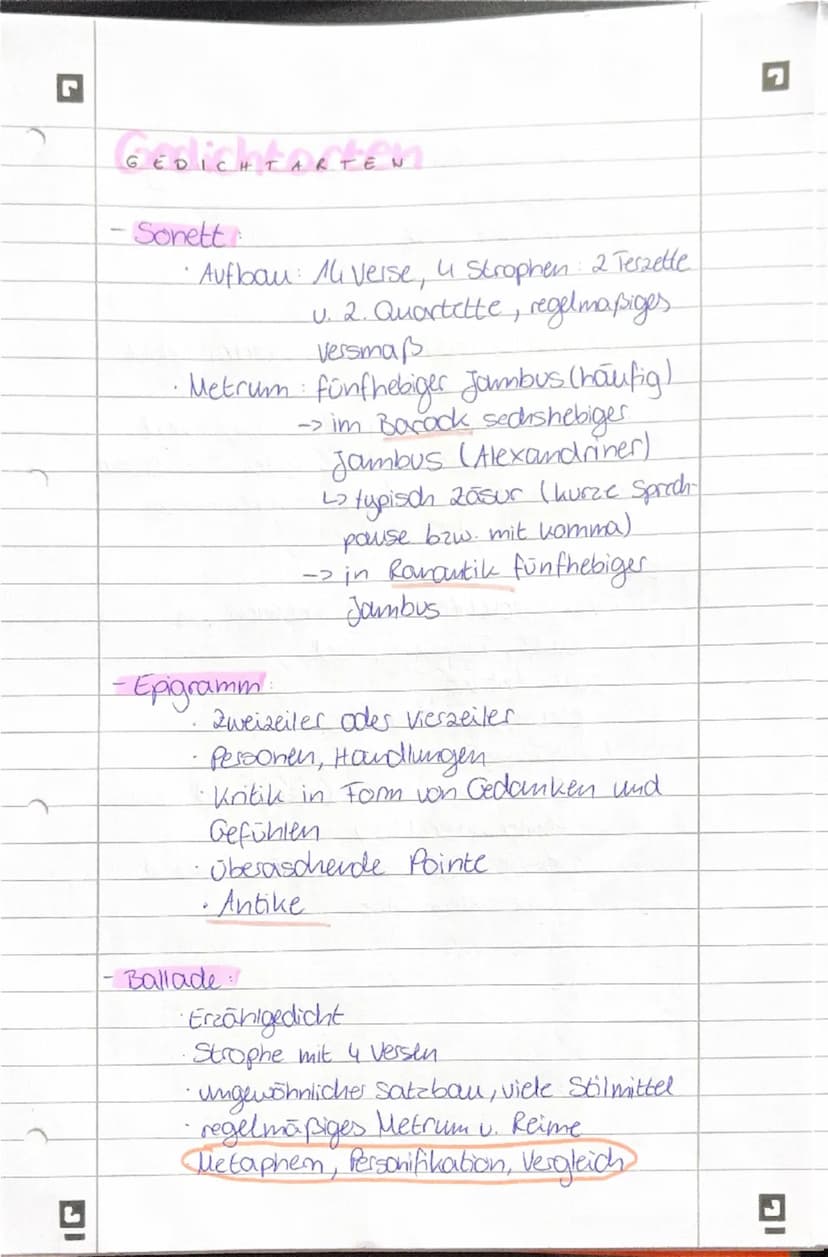 Gedichtarten
GEDICHTARTEN
- Sonett:
· Aufbau: 14 Verse, 4 Strophen: 2 Terzette
u. 2. Quartette, regelmäßiges
Versmaß
· Metrum: fünfhebiger Jambus (häufig)
-> im Barock sechshebiger
Jambus (Alexandriner)
↳ typisch Zäsur (kurze Sprech-
pause bzw. mit Komma)
-> in Romantik fünfhebiger
Jambus
- Epigramm:
· Zweizeiler oder Vierzeiler
· Personen, Handlungen
· Kritik in Form von Gedanken und
Gefühlen
· überaschende Pointe
· Antike
- Ballade:
· Erzählgedicht
· Strophe mit 4 Versen
· ungewöhnlicher Satzbau, viele Stilmittel
· regelmäßiges Metrum u. Reime
Metaphern, Personifikation, Vergleich